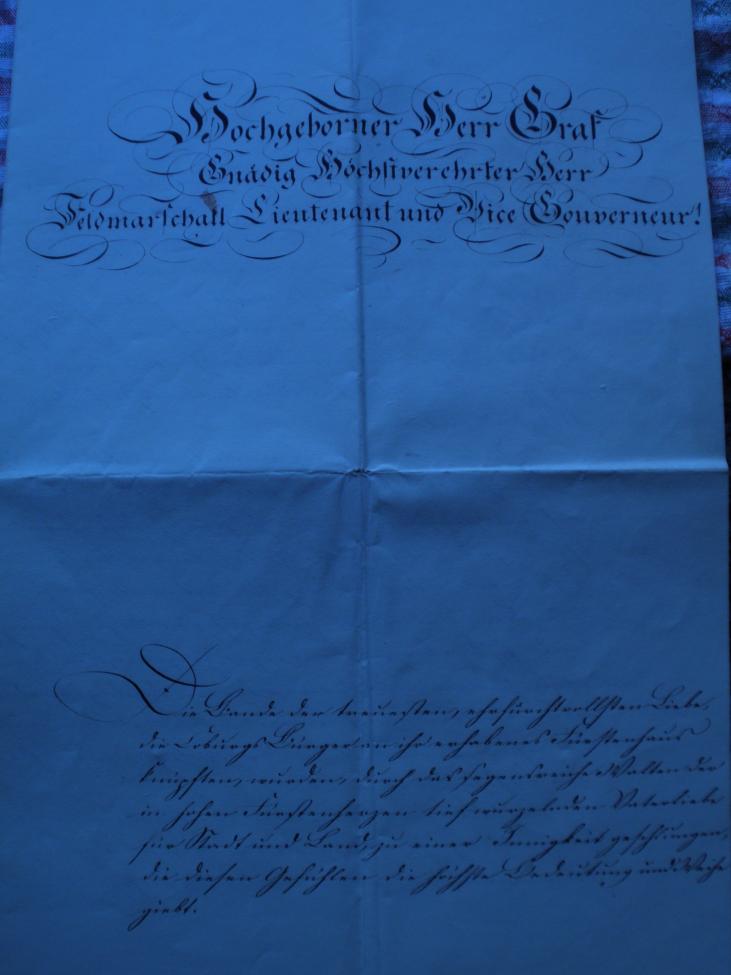 Hochgeborner Herr Graf
Gnädig Höchstverehrter Herr
Feldmarschall Lieutenant und Vice Gouverneur!
Die Bande der treuesten, ehrfurchtvollsten Liebe,
die Coburgs Bürger an ihr erhabenes Fürstenhaus
knüpften, wurden, durch das segensreiche Walten der
in hohen Fürstenherzen tief wurzelnden Vaterliebe
für Stadt und Land, zu einer Innigkeit geschlungen,
die diesen Gefühlen die höchste Bedeutung und Weihe
giebt.